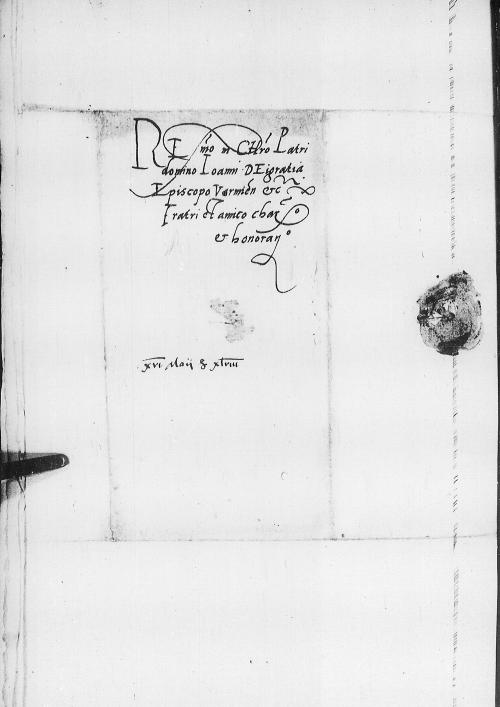 REmo in CHro Patri
domino Ioanni DEI gratia
Episcopo Varmien etc
Fratri et amico charo
et honoran
xvi Maii xlviii